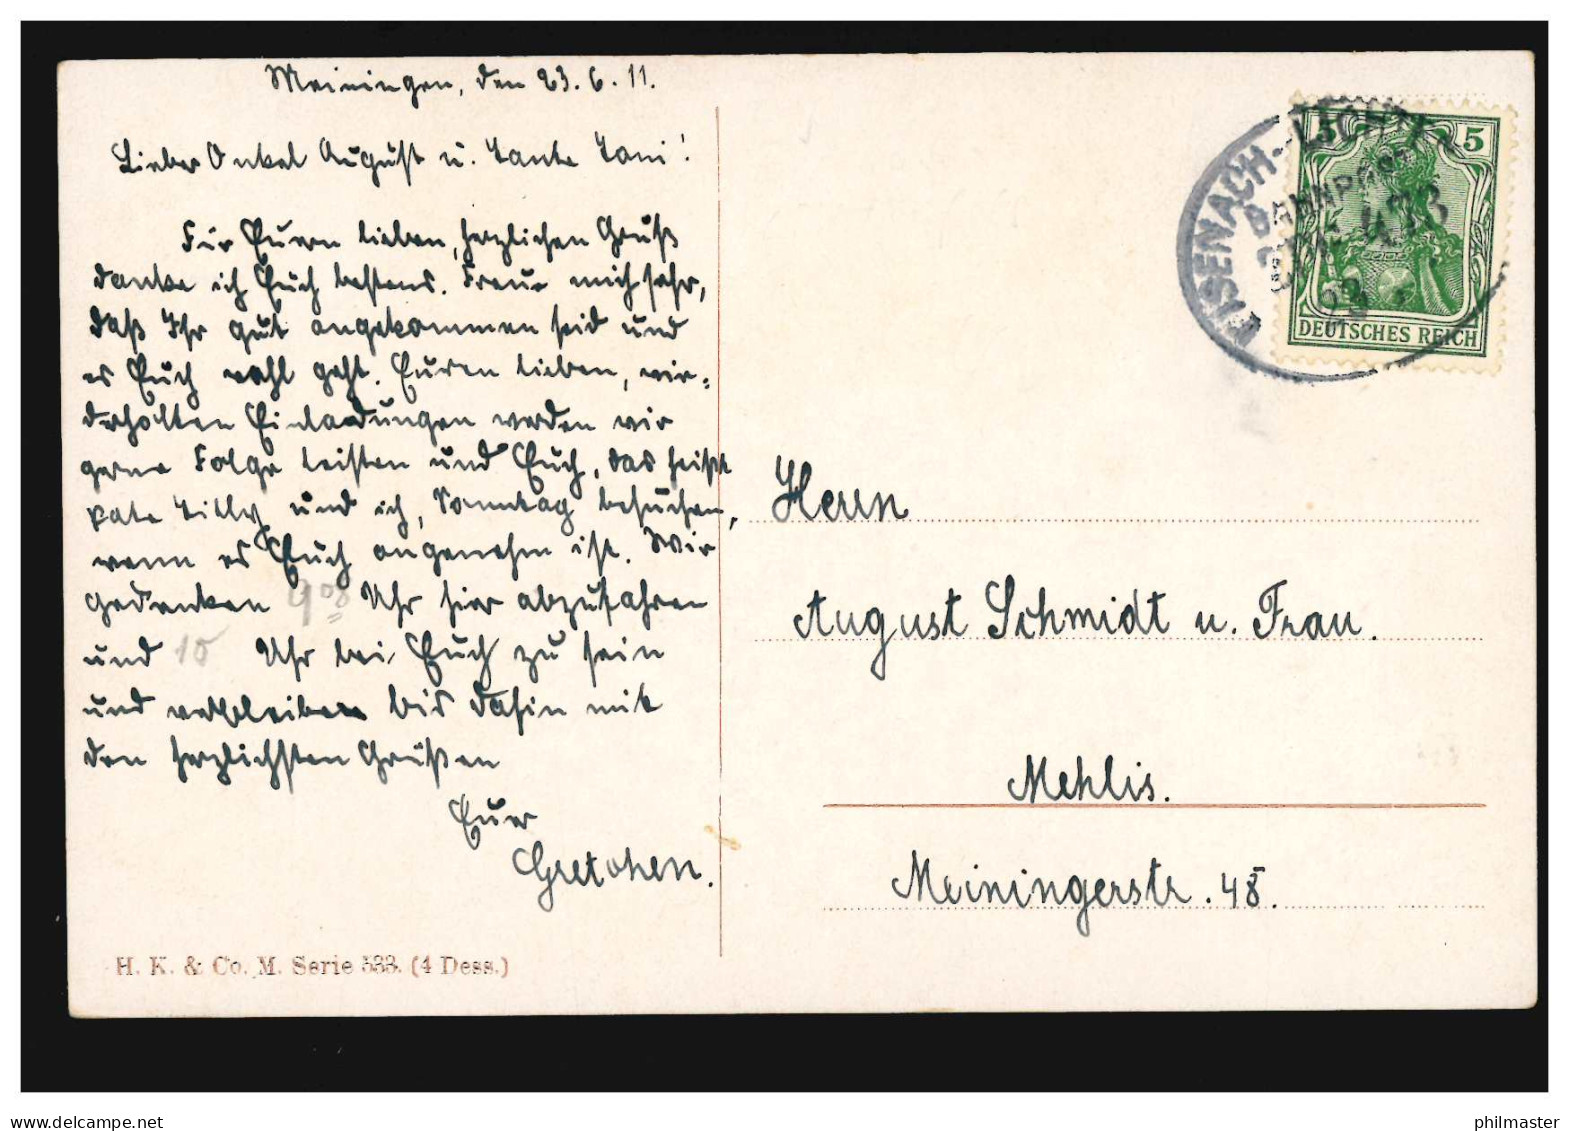 Meiningen, den 23. 6. 11.
Lieber Onkel August u. Tante Toni!
Für Euern lieben, herzlichen Gruß
danke ich Euch bestens. Freue mich sehr,
daß Ihr gut angekommen seid und
es Euch wohl geht. Euren lieben, wie-
derholten Einladungen werden wir
gerne Folge leisten und Euch, das heißt
Tilly und ich, Sonntag besuchen,
wenn es Euch angenehm ist. Wir
gedenken 9 08 Uhr hier abzufahren
und 10 Uhr bei Euch zu sein
und verbleiben bis dahin mit
den herzlichsten Grüßen
Eure
Gretchen.
H. K. & Co. M. Serie 533. (4 Dess.)
EISENACH-LICHTE
BAHNPOST
ZUG 423
23
5 5
DEUTSCHES REICH
Herrn
August Schmidt u. Frau.
Mehlis.
Meiningerstr. 48.
www.delcampe.net
philmaster